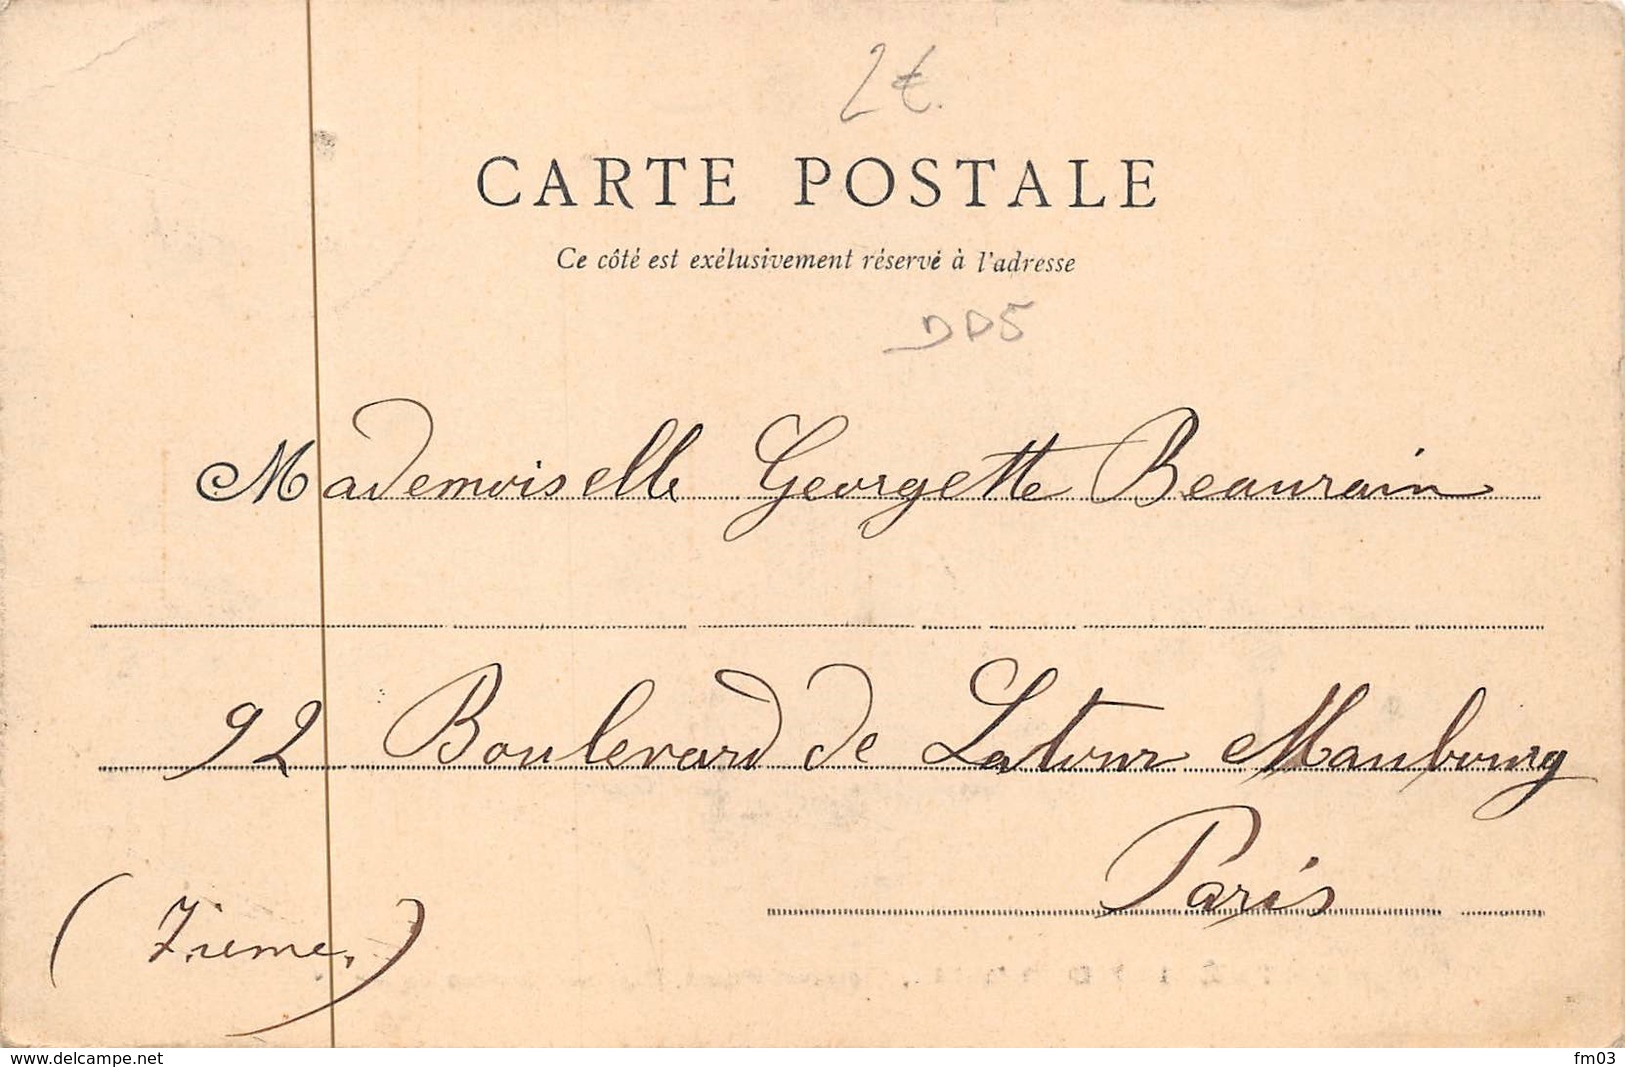 2€.
CARTE POSTALE
Ce côté est exélusivement réservé à l'adresse
DD5
Mademoiselle Georgette Beaurain
92 Boulevard de Latour Maubourg
Paris
(7ieme.)
www.delcampe.net
fm03